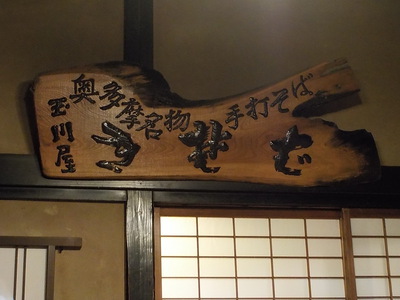 奥多摩名物 手打そば
玉川屋